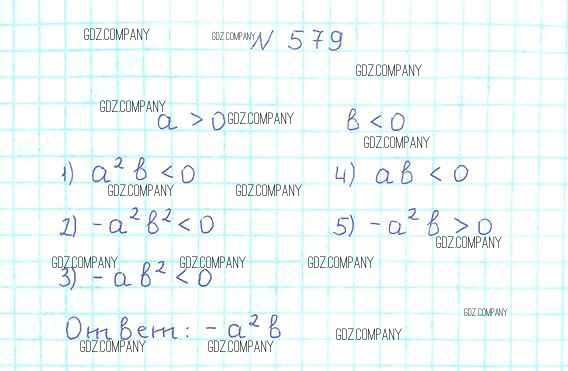 GDZ.COMPANY GDZ.COMPANY
N 579
GDZ.COMPANY
GDZ.COMPANY
a > 0 GDZ.COMPANY в < 0
GDZ.COMPANY
1) a² в < 0 4) aв < 0
GDZ.COMPANY GDZ.COMPANY
2) -a² в² < 0 5) -a² в > 0
GDZ.COMPANY
GDZ.COMPANY GDZ.COMPANY GDZ.COMPANY
3) -a в² < 0
GDZ.COMPANY
Ответ: -a² в
GDZ.COMPANY
GDZ.COMPANY GDZ.COMPANY